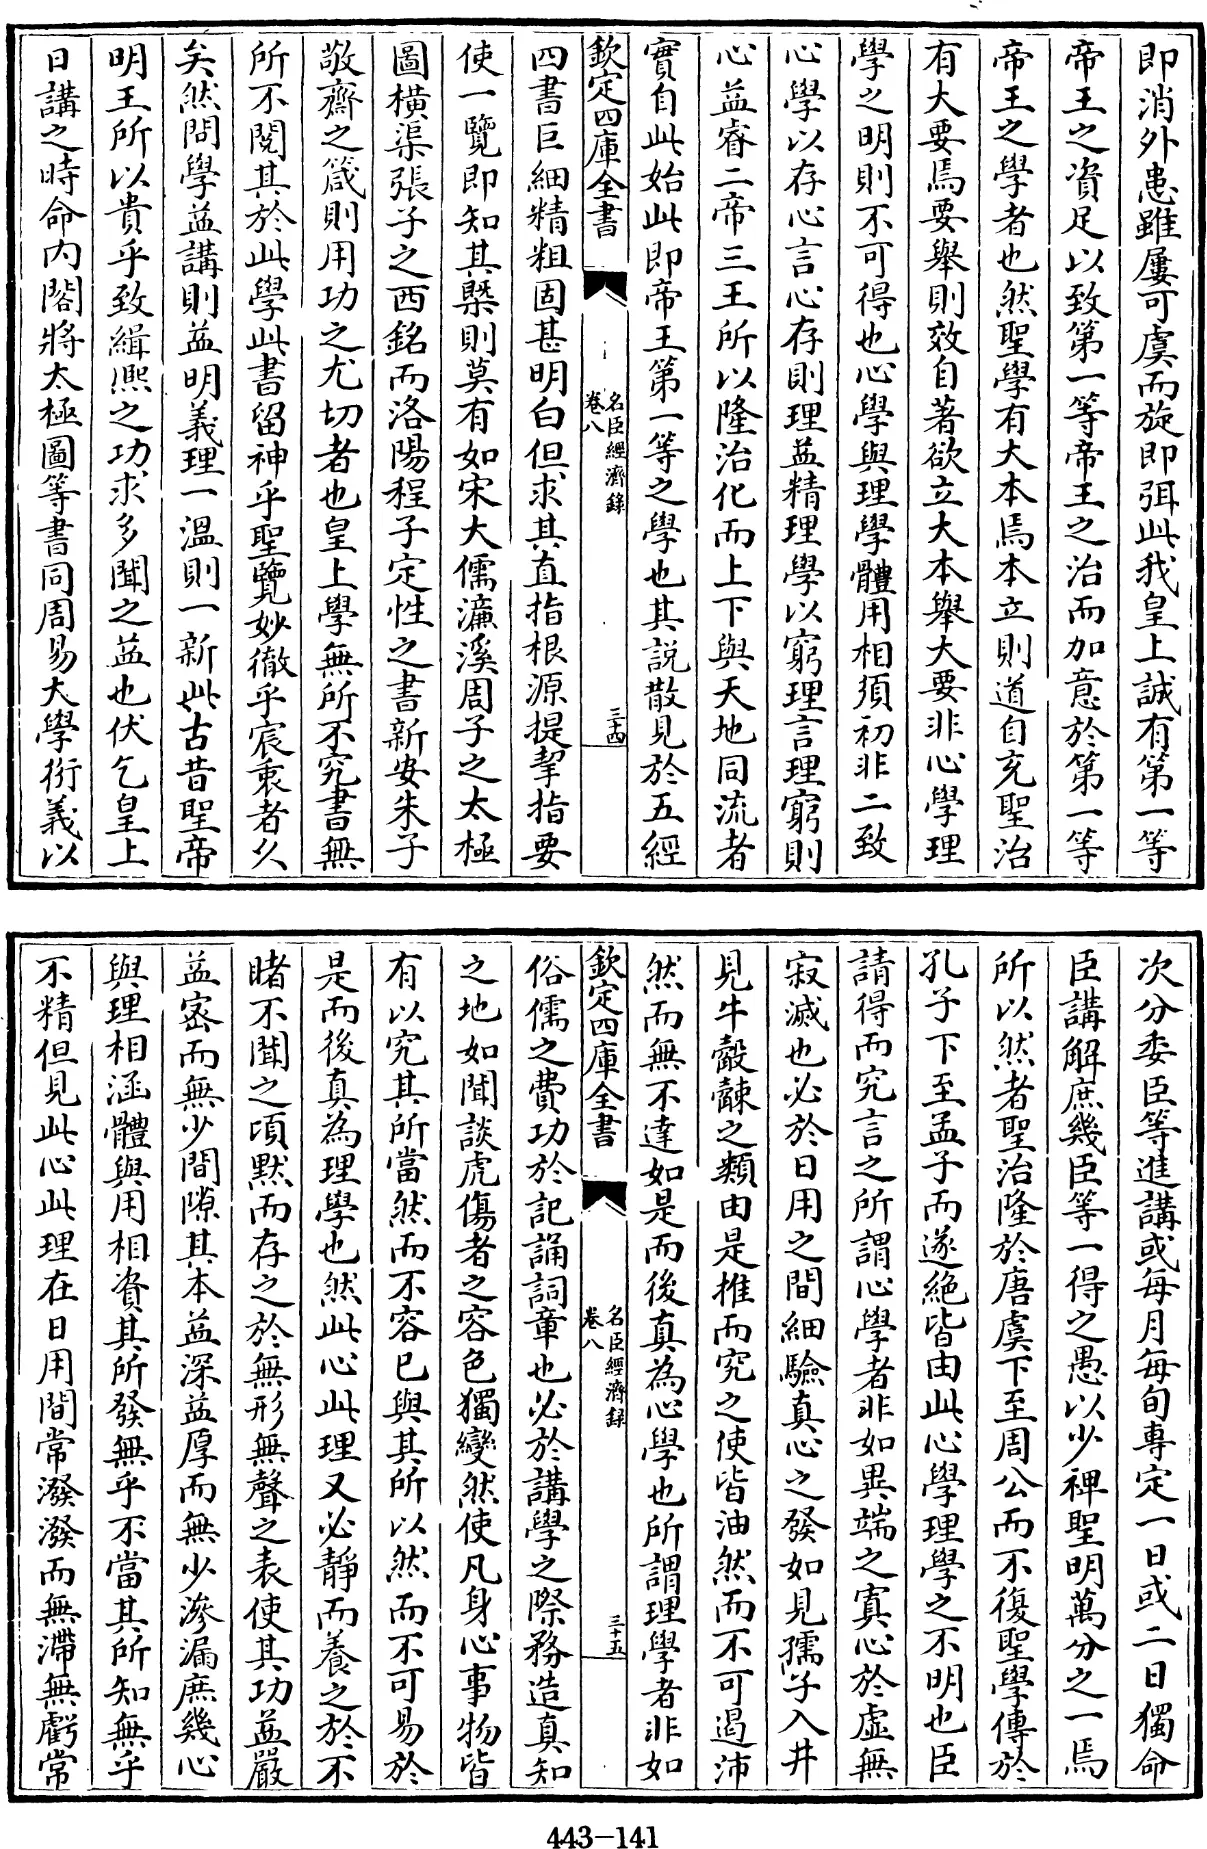 即消外患雖屢可虞而旋即弭此我皇上誠有第一等
帝王之資足以致第一等帝王之治而加意於第一等
帝王之學者也然聖學有大本焉本立則道自充聖治
有大要焉要舉則效自著欲立大本舉大要非心學理
學之明則不可得也心學與理學體用相須初非二致
心學以存心言心存則理益精理學以窮理言理窮則
心益睿二帝三王所以隆治化而上下與天地同流者
實自此始此即帝王第一等之學也其說散見於五經
欽定四庫全書
名臣經濟錄
卷八
三十四
四書巨細精粗固甚明白但求其直指根源提挈指要
使一覽即知其槩則莫有如宋大儒濂溪周子之太極
圖橫渠張子之西銘而洛陽程子定性之書新安朱子
敬齋之箴則用功之尤切者也皇上學無所不究書無
所不閱其於此學此書留神乎聖覽妙徹乎宸衷者久
矣然問學益講則益明義理一溫則一新此古昔聖帝
明王所以貴乎致緝熙之功求多聞之益也伏乞皇上
日講之時命内閣將太極圖等書同周易大學衍義以
次分委臣等進講或每月每旬專定一日或二日獨命
臣講解庶幾臣等一得之愚以少裨聖明萬分之一焉
所以然者聖治隆於唐虞下至周公而不復聖學傳於
孔子下至孟子而遂絶皆由此心學理學之不明也臣
請得而究言之所謂心學者非如異端之寘心於虛無
寂滅也必於日用之間細驗真心之發如見孺子入井
見牛觳觫之類由是推而究之使皆油然而不可遏沛
然而無不達如是而後真為心學也所謂理學者非如
欽定四庫全書
名臣經濟録
卷八
三十五
俗儒之費功於記誦詞章也必於講學之際務造真知
之地如聞談虎傷者之容色獨變然使凡身心事物皆
有以究其所當然而不容已與其所以然而不可易於
是而後真為理學也然此心此理又必靜而養之於不
睹不聞之頃默而存之於無形無聲之表使其功益嚴
益密而無少間隙其本益深益厚而無少滲漏庶幾心
與理相涵體與用相資其所發無乎不當其所知無乎
不精但見此心此理在日用間常潑潑而無滯無虧常
443-141